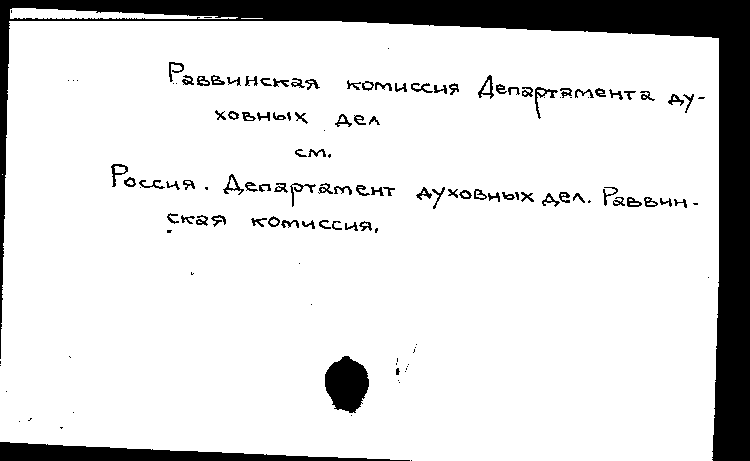 Раввинская комиссия Департамента ду-
ховных дел
см.
Россия. Департамент духовных дел. Раввин-
ская комиссия.